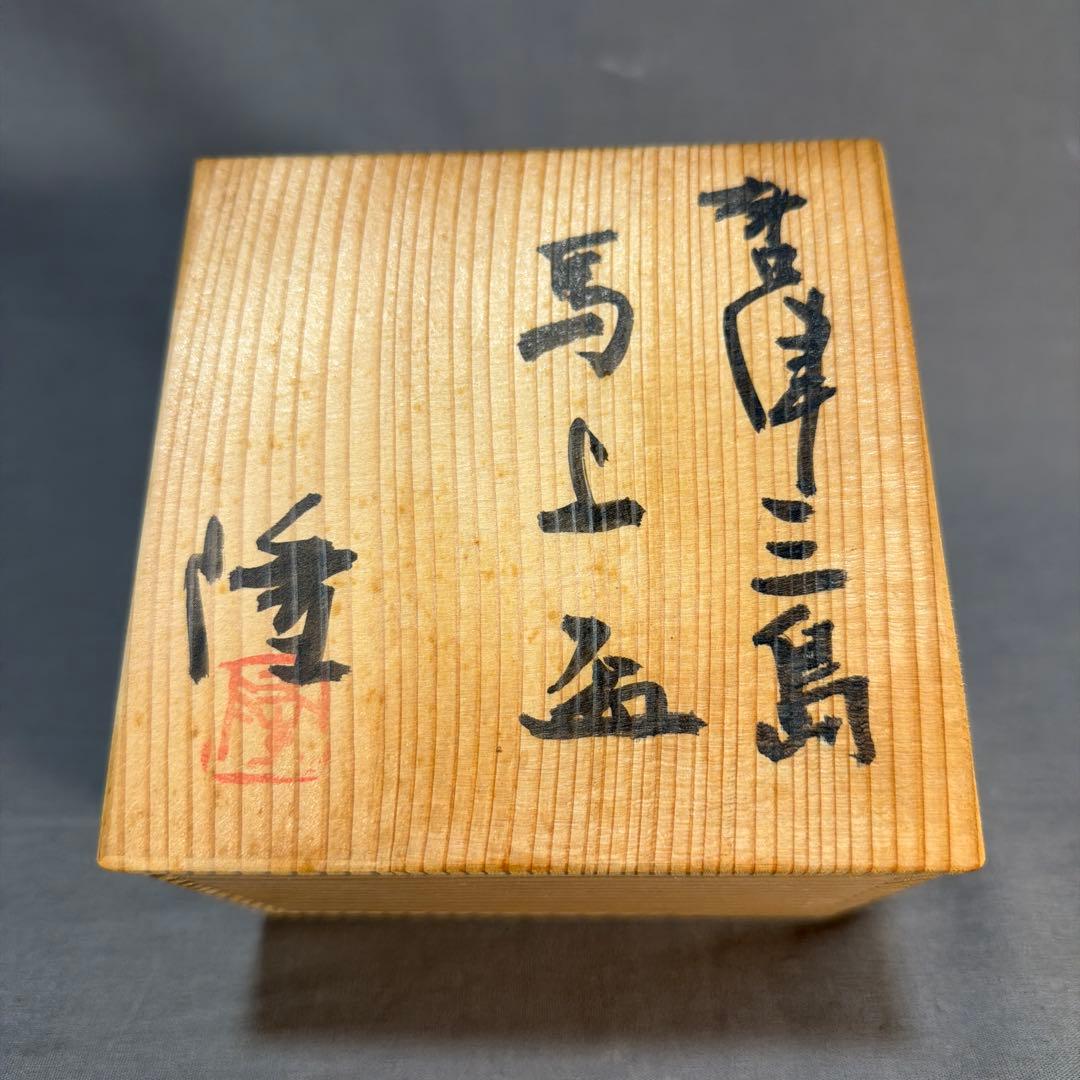 唐津三島
馬上盃